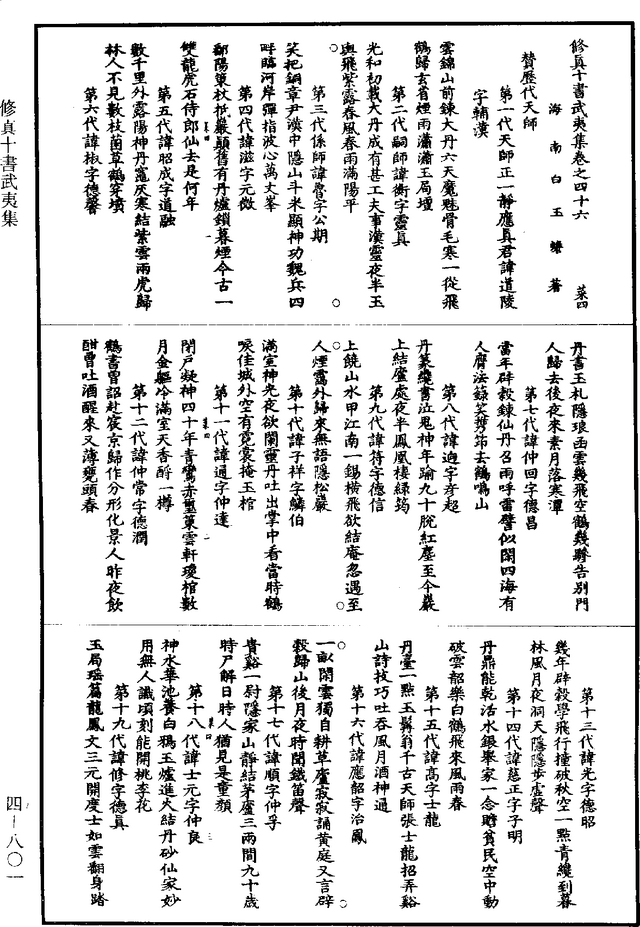 修真十書武夷集卷之四十六　菜四
海南白玉蟾著
贊歷代天師
第一代天師正一靜應真君諱道陵
字輔漢
雲錦山前鍊大丹六天魔魅骨毛寒一從飛
鶴歸玄省煙雨瀟瀟玉局壇
第二代嗣師諱衡字靈真
光和初載大丹成有甚工夫事漢靈夜半玉
輿飛紫霧春風春雨滿陽平
第三代係師諱魯字公期
笑把銅章尹漢中隱山斗米顯神功魏兵四
畔臨河岸彈指波心萬丈峯
第四代諱滋字元微
鄱陽策杖抵巖巔舊有丹爐鎖暮煙今古一
雙龍虎石侍郎仙去是何年
第五代諱昭成字道融
數千里外露陽神丹竈灰寒結紫雲兩虎歸
林人不見數枝菌草鶴穿墳
第六代諱椒字德馨
丹書玉札隱琅函雲幾飛空鶴幾驂告別門
人歸去後夜來素月落寒潭
第七代諱仲回字德昌
當年辟穀鍊仙丹召雨呼雷譬似閑四海有
人膺法籙笑攜笻去鶴鳴山
第八代諱迥字彦超
丹篆纔書泣鬼神年踰九十脫紅塵至今巖
上結廬處夜半鳳凰棲綠筠
第九代諱符字德信
上饒山水甲江南一錫橫飛欲結庵忽遇至
人煙靄外歸來無語隱松巖
第十代諱子祥字麟伯
滿室神光夜欲闌靈丹吐出掌中看當時鶴
唳佳城外空有霓裳掩玉棺
第十一代諱通字仲達
閉戶凝神四十年青鸞赤璽策雲軒瓊棺數
月金軀冷滿室天香酹一樽
第十二代諱仲常字德潤
鶴書曾詔赴宸京歸作分形化景人昨夜飲
酣曾吐酒醒來又薄甕頭春
第十三代諱光字德昭
幾年辟穀學飛行撞破秋空一點青纔到暮
林風月夜洞天隱隱步虛聲
第十四代諱慈正字子明
丹鼎能乾活水銀舉家一念贍貧民空中動
破雲韶樂白鶴飛來風雨春
第十五代諱高字士龍
丹臺一點玉髯翁千古天師張士龍招弄谿
山詩技巧吐吞風月酒神通
第十六代諱應韶字治鳳
一畝閑雲獨自耕草廬寂寂誦黄庭又言辟
穀歸山後月夜時聞鐵笛聲
第十七代諱順字仲孚
貴谿一尉隱家山靜結茅廬三兩間九十歲
時尸解日時人猶見是童顏
第十八代諱士元字仲良
神水華池養白鴉玉爐進火結丹砂仙家妙
用無人識頃刻能開桃李花
第十九代諱修字德真
玉局瑶篇龍鳳文三元開度士如雲翻身踏
修真十書武夷集
四-八〇一